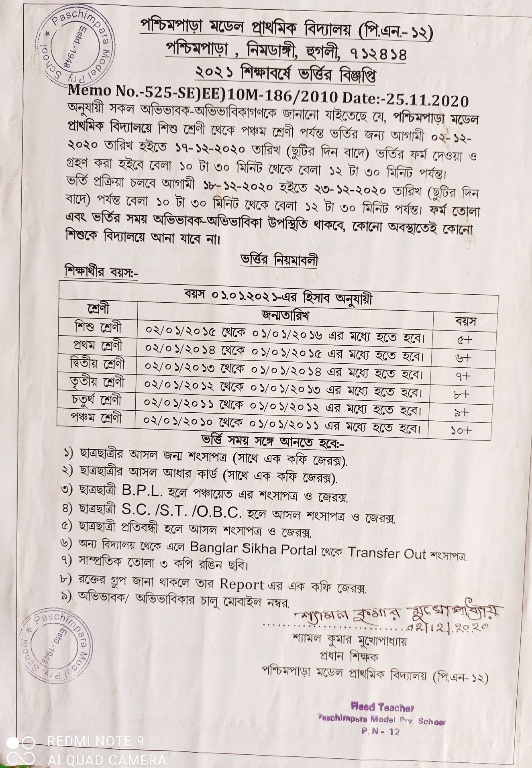 পশ্চিমপাড়া মডেল প্রাথমিক বিদ্যালয় (পি.এন-১২)
পশ্চিমপাড়া , নিমডাঙ্গী, হুগলী, ৭১২৪১৪
২০২১ শিক্ষাবর্ষে ভর্ত্তির বিজ্ঞপ্তি
Memo No.-525-SE)EE)10M-186/2010 Date:-25.11.2020
অনুযায়ী সকল অভিভাবক-অভিভাবিকাগণকে জানানো যাইতেছে যে, পশ্চিমপাড়া মডেল
প্রাথমিক বিদ্যালয়ে শিশু শ্রেণী থেকে পঞ্চম শ্রেণী পর্যন্ত ভর্তির জন্য আগামী ০২-১২-
২০২০ তারিখ হইতে ১৭-১২-২০২০ তারিখ (ছুটির দিন বাদে) ভর্তির ফর্ম দেওয়া ও
গ্রহণ করা হইবে বেলা ১০ টা ৩০ মিনিট থেকে বেলা ১২ টা ৩০ মিনিট পর্যন্ত।
ভর্তি প্রক্রিয়া চলবে আগামী ১৮-১২-২০২০ হইতে ২৩-১২-২০২০ তারিখ (ছুটির দিন
বাদে) পর্যন্ত বেলা ১০ টা ৩০ মিনিট থেকে বেলা ১২ টা ৩০ মিনিট পর্যন্ত। ফর্ম তোলা
এবং ভর্তির সময় অভিভাবক-অভিভাবিকা উপস্থিতি থাকবে, কোনো অবস্থাতেই কোনো
শিশুকে বিদ্যালয়ে আনা যাবে না।
ভর্ত্তির নিয়মাবলী
শিক্ষার্থীর বয়স:-
বয়স ০১.০১.২০২১-এর হিসাব অনুযায়ী
শ্রেণী জন্মতারিখ বয়স
শিশু শ্রেণী ০২/০১/২০১৫ থেকে ০১/০১/২০১৬ এর মধ্যে হতে হবে। ৫+
প্রথম শ্রেণী ০২/০১/২০১৪ থেকে ০১/০১/২০১৫ এর মধ্যে হতে হবে। ৬+
দ্বিতীয় শ্রেণী ০২/০১/২০১৩ থেকে ০১/০১/২০১৪ এর মধ্যে হতে হবে। ৭+
তৃতীয় শ্রেণী ০২/০১/২০১২ থেকে ০১/০১/২০১৩ এর মধ্যে হতে হবে। ৮+
চতুর্থ শ্রেণী ০২/০১/২০১১ থেকে ০১/০১/২০১২ এর মধ্যে হতে হবে। ৯+
পঞ্চম শ্রেণী ০২/০১/২০১০ থেকে ০১/০১/২০১১ এর মধ্যে হতে হবে। ১০+
ভর্ত্তি সময় সঙ্গে আনতে হবে:-
১) ছাত্রছাত্রীর আসল জন্ম শংসাপত্র (সাথে এক কফি জেরক্স).
২) ছাত্রছাত্রীর আসল আধার কার্ড (সাথে এক কফি জেরক্স).
৩) ছাত্রছাত্রী B.P.L. হলে পঞ্চায়েত এর শংসাপত্র ও জেরক্স.
৪) ছাত্রছাত্রী S.C. /S.T. /O.B.C. হলে আসল শংসাপত্র ও জেরক্স.
৫) ছাত্রছাত্রী প্রতিবন্ধী হলে আসল শংসাপত্র ও জেরক্স.
৬) অন্য বিদ্যালয় থেকে এলে Banglar Sikha Portal থেকে Transfer Out শংসাপত্র
৭) সাম্প্রতিক তোলা ৩ কপি রঙিন ছবি।
৮) রক্তের গ্রুপ জানা থাকলে তার Report এর এক কফি জেরক্স.
৯) অভিভাবক/ অভিভাবিকার চালু মোবাইল নম্বর.
শ্যামল কুমার মুখোপাধ্যায়
02/12/2020
শ্যামল কুমার মুখোপাধ্যায়
প্রধান শিক্ষক
পশ্চিমপাড়া মডেল প্রাথমিক বিদ্যালয় (পি.এন-১২)
Head Teacher
Paschimpara Model Pry. School
P.N - 12
Paschimpara Model Pry. School
Estd.-1948
Paschimpara Model Pry. School
Estd.-1948
REDMI NOTE 9
AI QUAD CAMERA